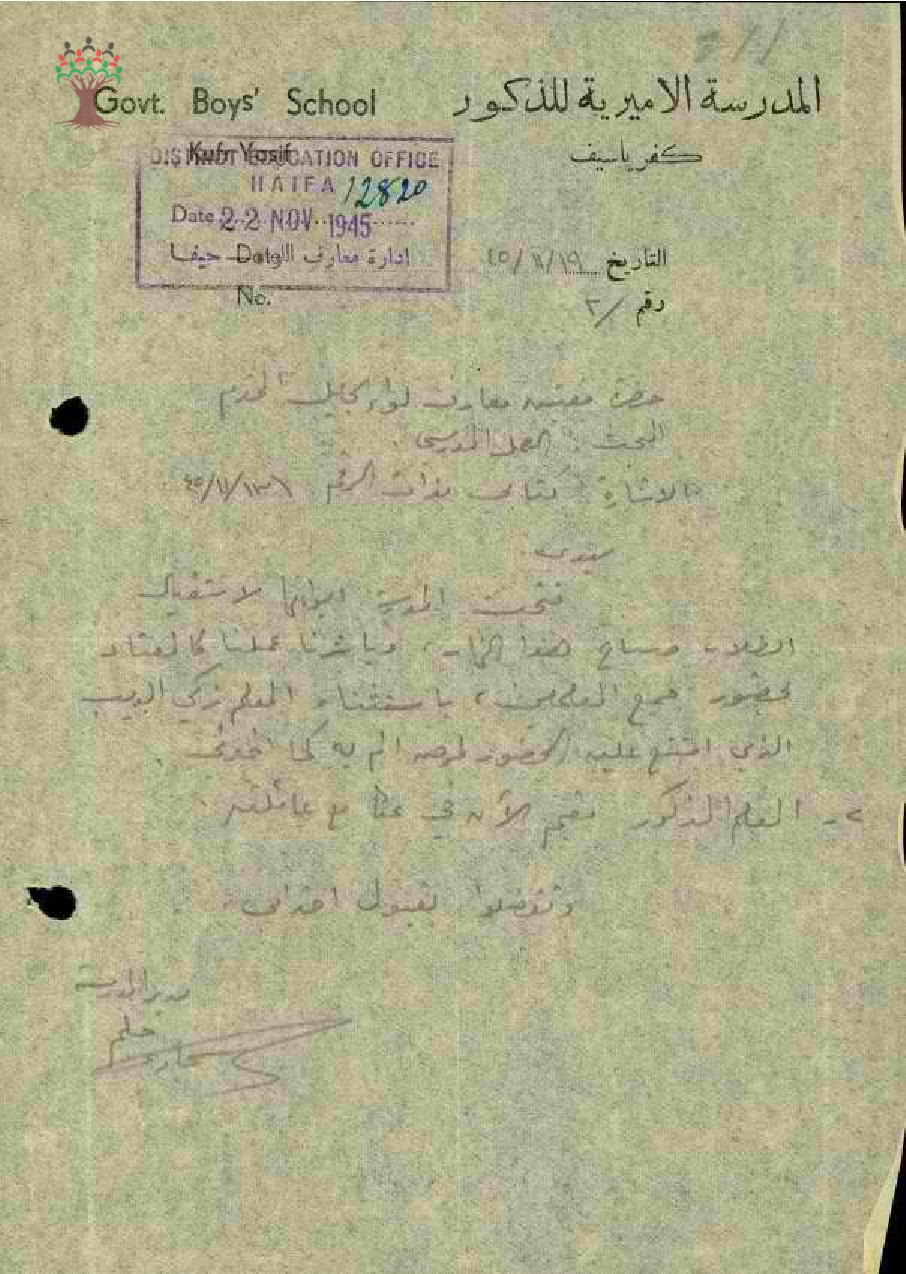 المدرسة الاميرية للذكور
Govt. Boys' School
كفر ياسيف
Kufr Yasif
DISTRICT EDUCATION OFFICE
HAIFA 12820
Date 22 NOV 1945
ادارة معارف اللواء حيفا
Date
No.
التاريخ ٤٥/١١/١٩
رقم ٢/
حضرة مفتش معارف لواء الجليل المحترم
المبحث : العمل المدرسي .
الاشارة : كتابي بذات الرقم
سيدي
فتحت المدرسة ابوابها لاستقبال
الطلاب صباح هذا النهار، وباشرنا عملنا كالمعتاد
بحضور جميع المعلمين، باستثناء المعلم زكي
الذي امتنع عليه الحضور لمرض الم به كما اخبرني .
٢- المعلم المذكور مقيم الآن في عكا مع عائلته .
وتفضلوا بقبول احترامي .
مدير المدرسة